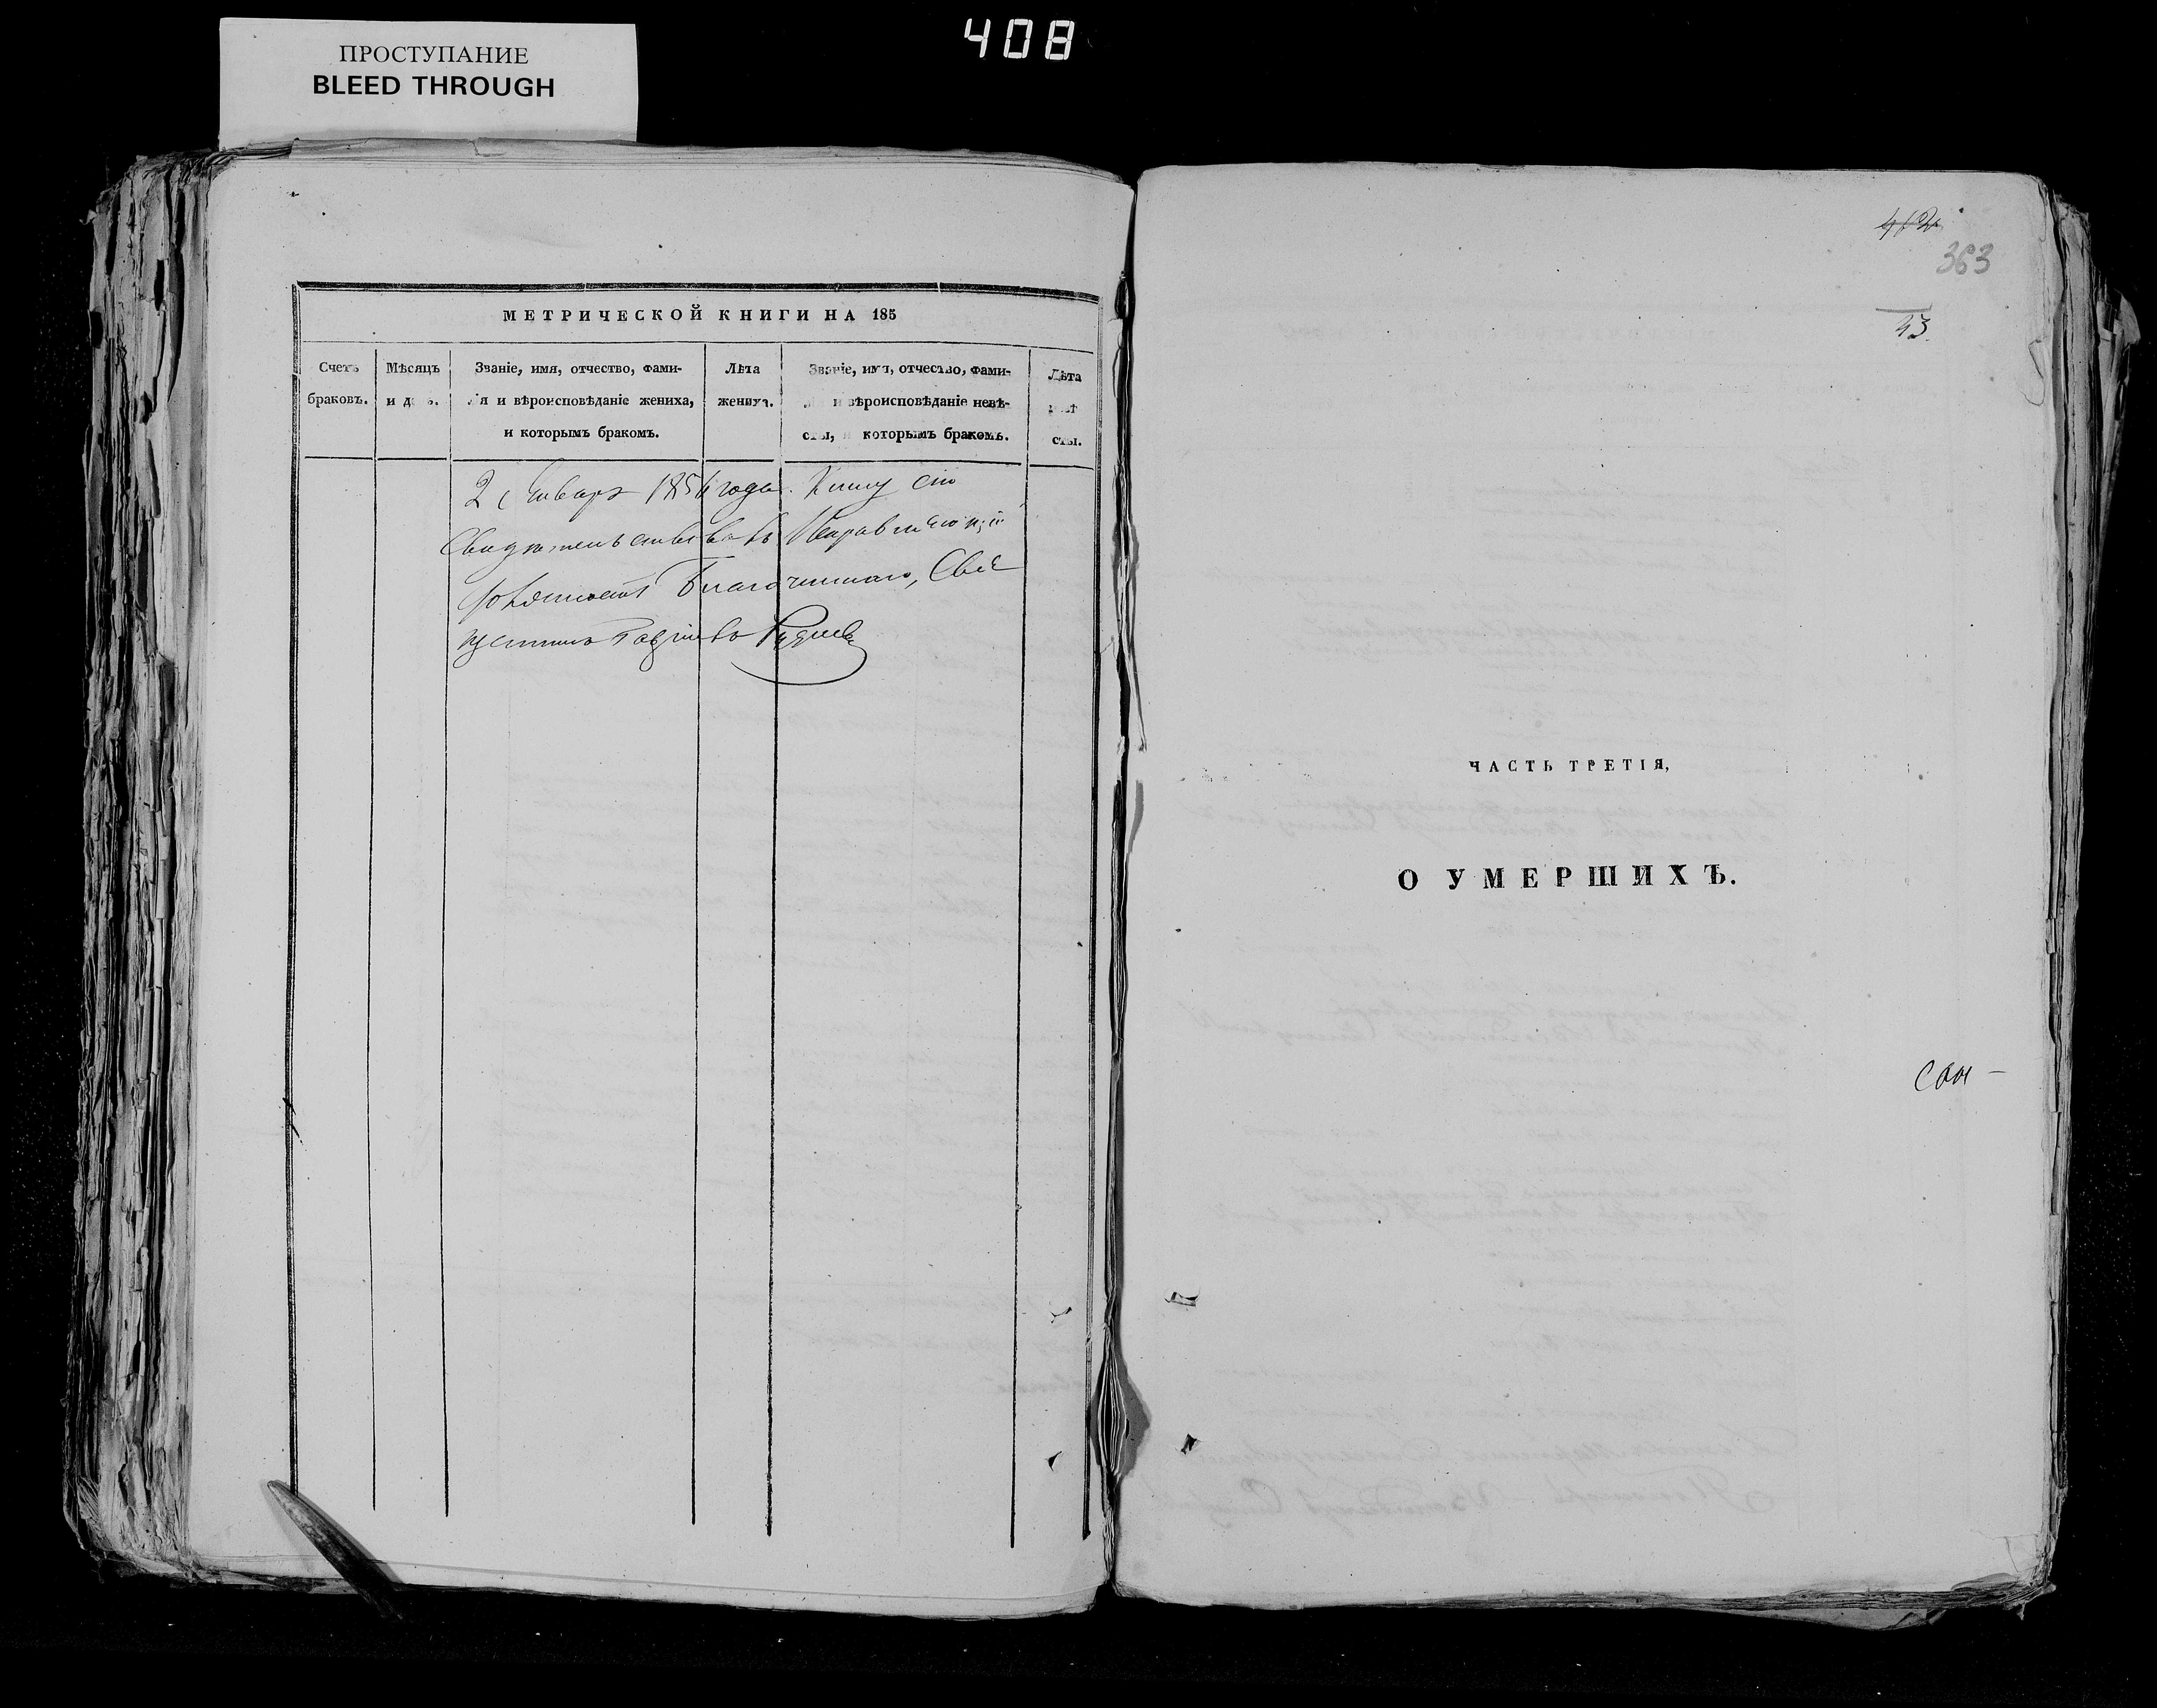 ПРОСТУПАНИЕ
BLEED THROUGH
408
МЕТРИЧЕСКОЙ КНИГИ НА 185
Счетъ браковъ.
Мѣсяцъ и день.
Званіе, имя, отчество, фами-
лія и вѣроисповѣданіе жениха,
и которымъ бракомъ.
Лѣта
жениха.
Званіе, имя, отчество, фами-
лія и вѣроисповѣданіе невѣ-
сты, и которымъ бракомъ.
Лѣта
невѣ-
сты.
2 Январ 1856 года. Книгу сію
Свидѣтельствовалъ Исправляющій
должность Благочиннаго, Свя
щенникъ
412
363
43
ЧАСТЬ ТРЕТІЯ,
О УМЕРШИХЪ.